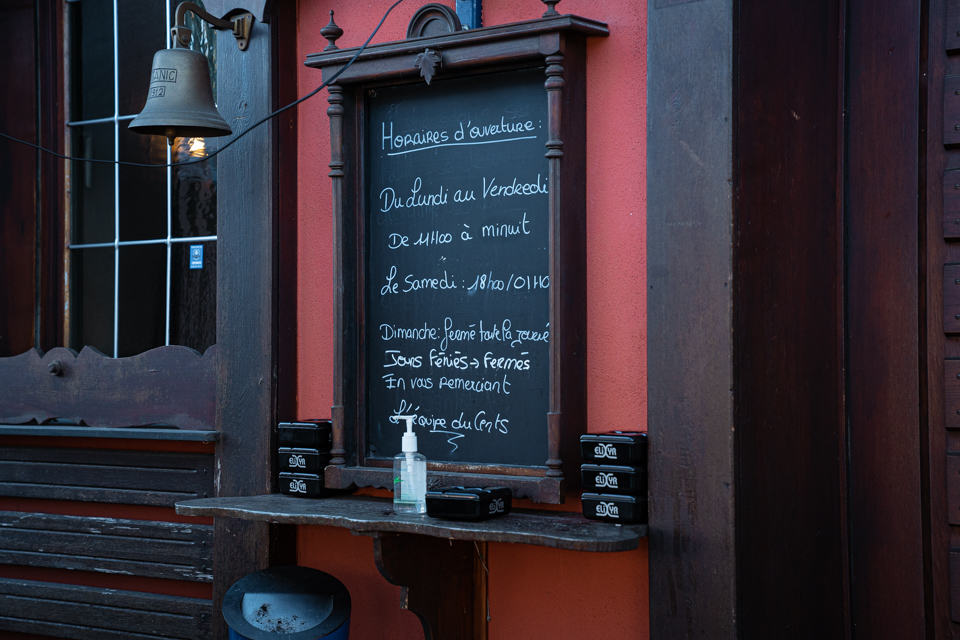 ANIC
Horaires d'ouverture :
Du Lundi au Vendredi
De 11H00 à minuit
Le Samedi : 18h00/01H0
Dimanche: fermé toute la journé
Jours Fériés → Fermés
En vous remerciant
L'équipe du Cents
ELIXYR
ELIXYR
ELIXYR
ELIXYR
ELIXYR
ELIXYR